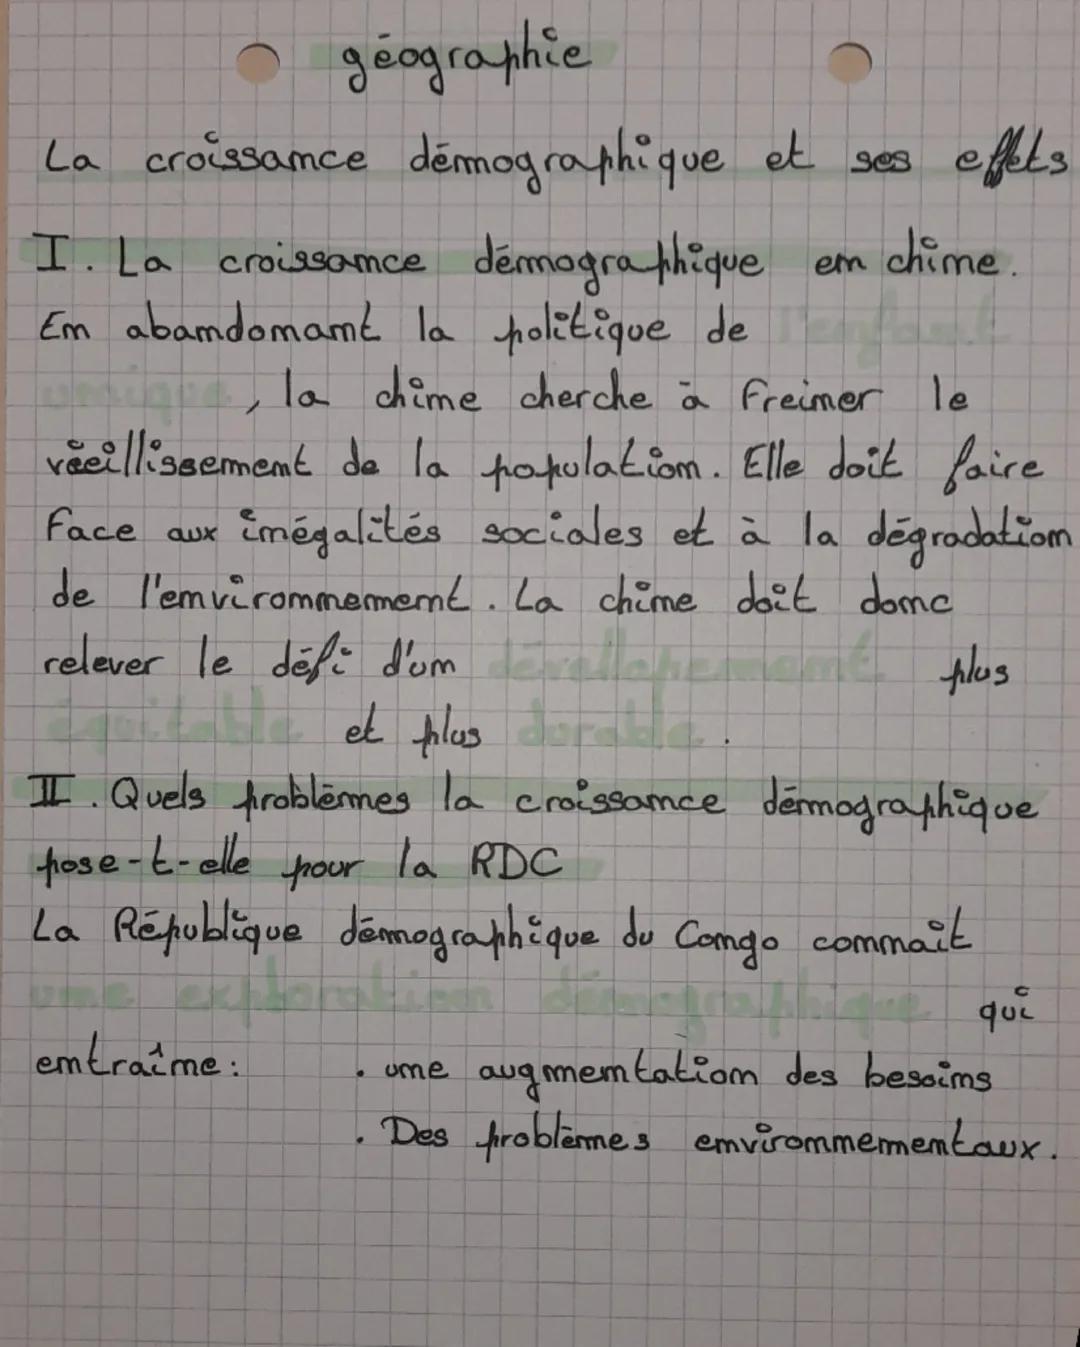 géographie
La croissance démographique et ses effets
I. La croissance démographique en chine.
En abandonant la politique de l'enfant
unique, la chine cherche à freiner le
véeillissement de la population. Elle doit faire
face aux inégalités sociales et à la dégradation
de l'environnement. La chine doit donc
relever le défi d'un dévellopement plus
équitable et plus durable.
II. Quels problèmes la croissance démographique
pose-t-elle pour la RDC
La République démographique du Congo connaît
une exploration démographique qui
entraîne: . une augmentation des besoins
. Des problèmes environnementaux.